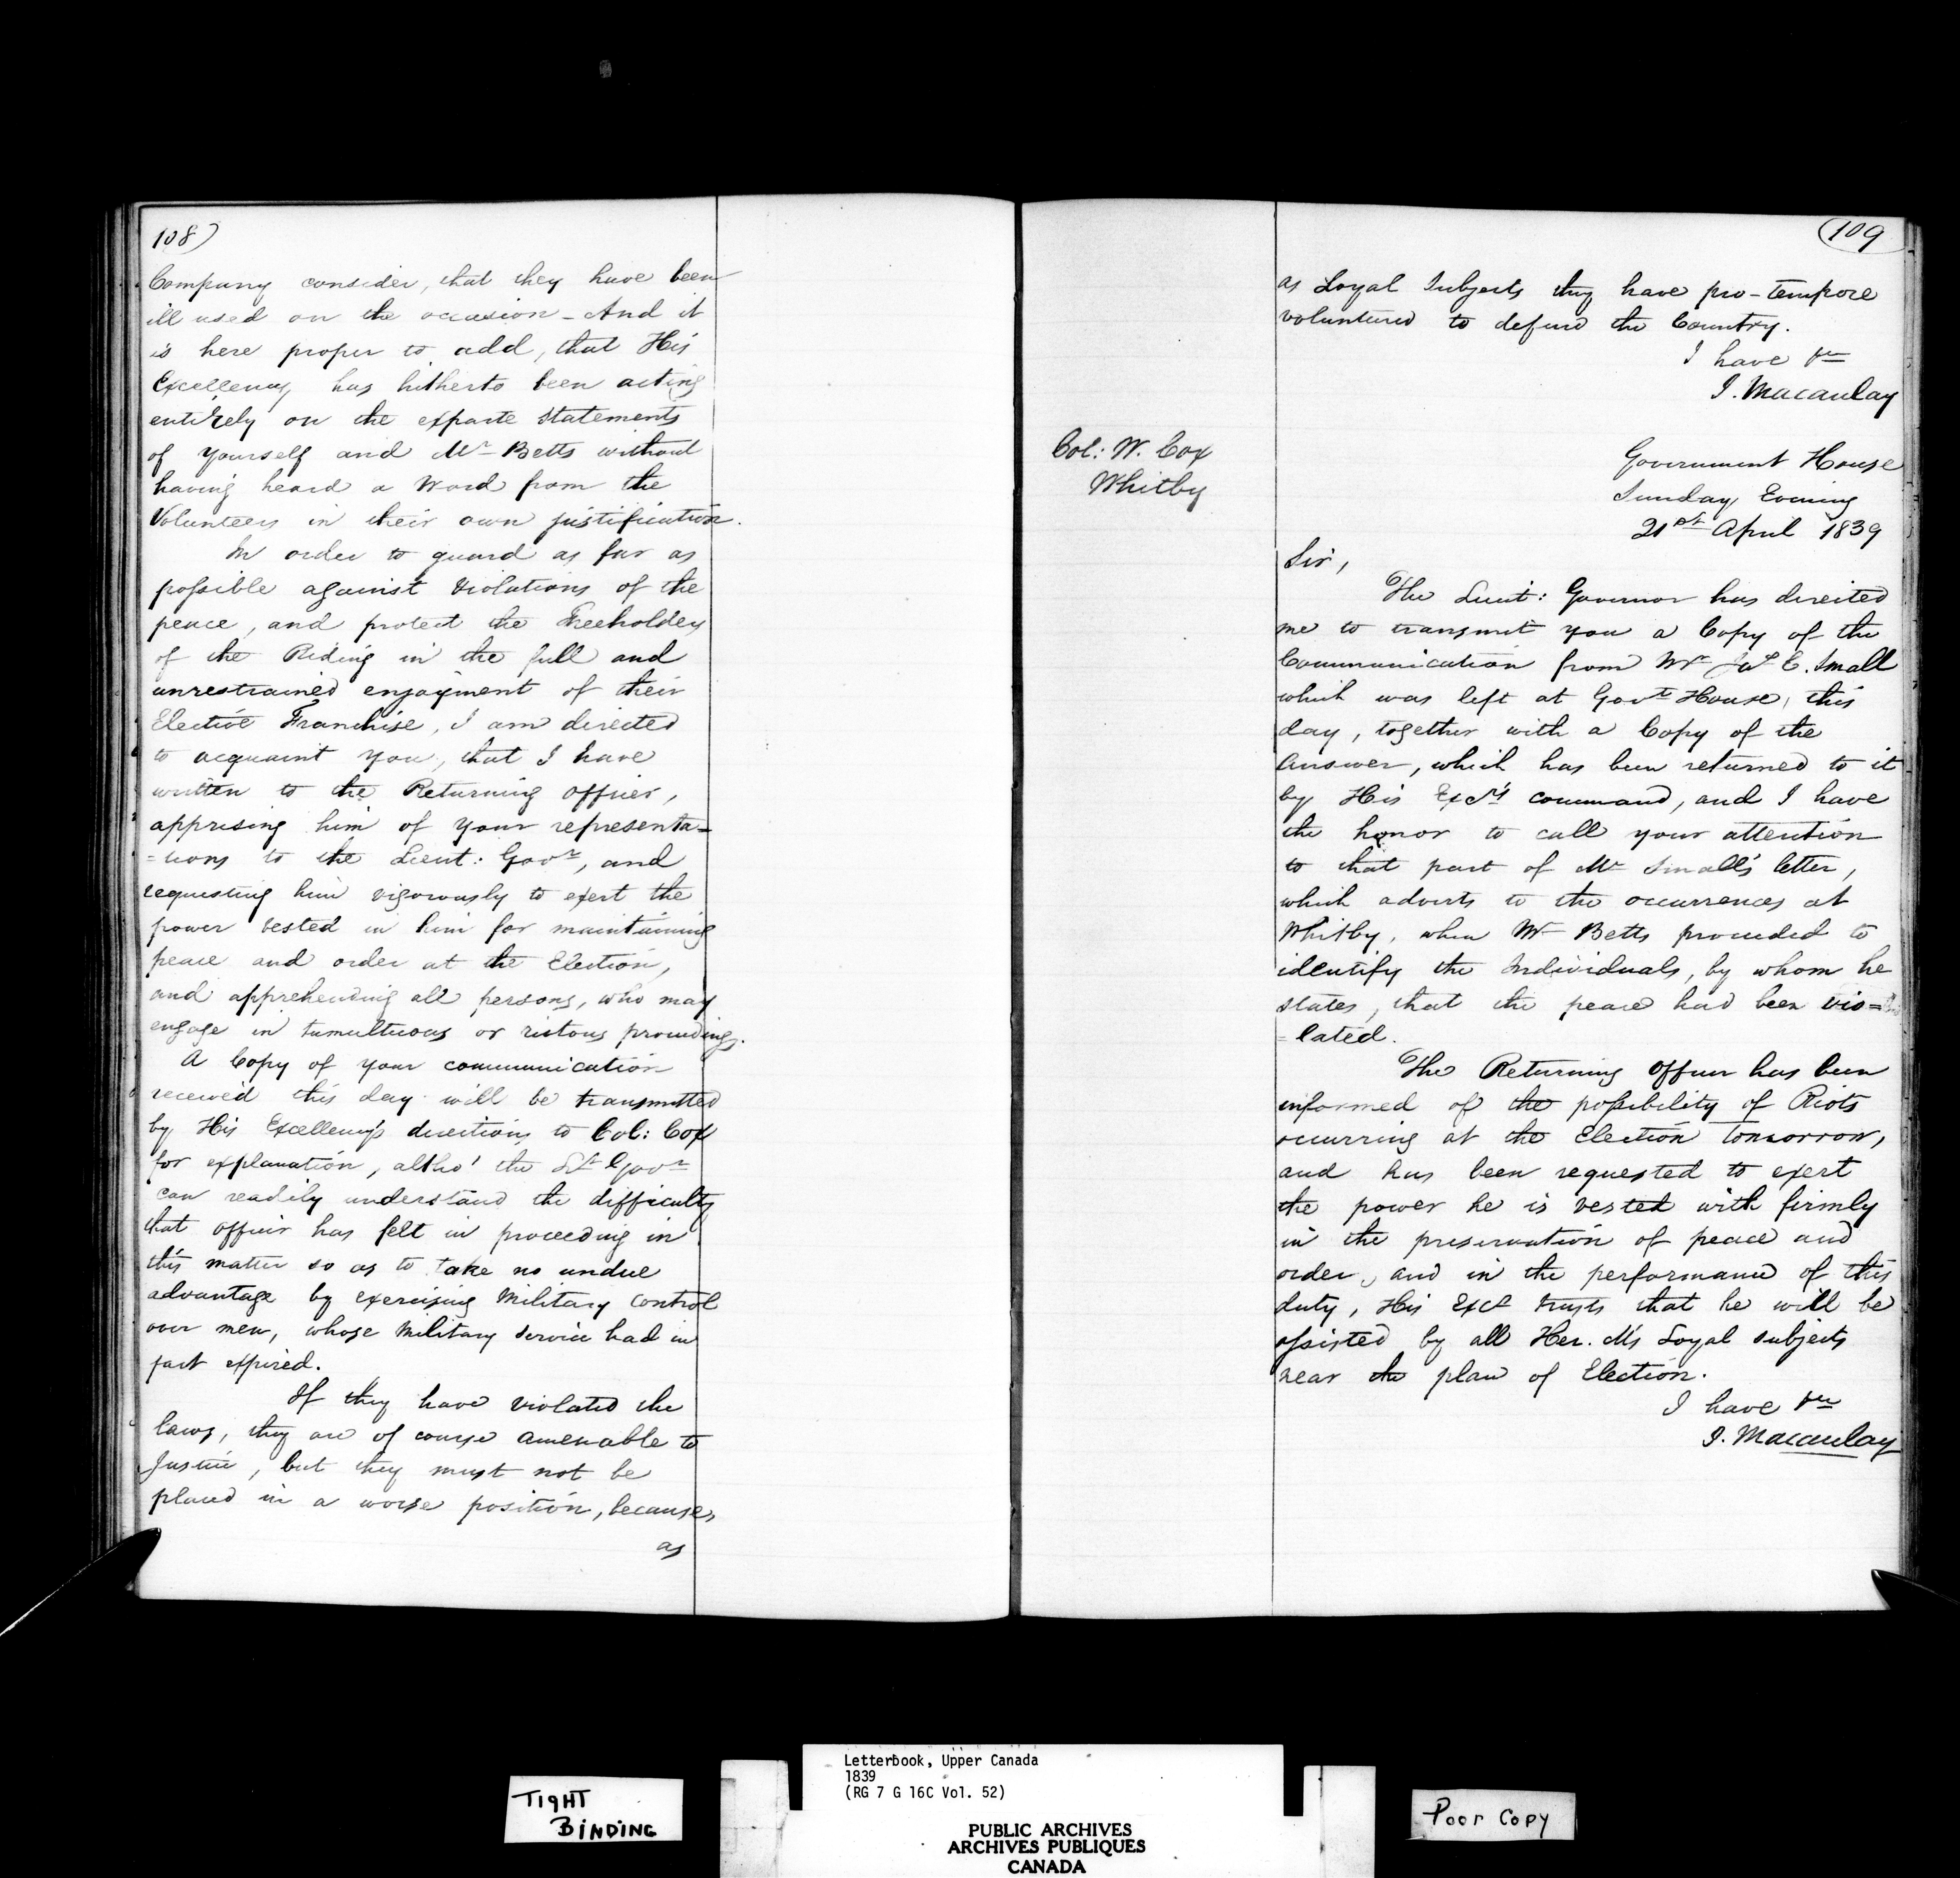 108)
Company consider, that they have been
ill used on the occasion - And it
is here proper to add, that His
Excellency has hitherto been acting
entirely on the exparte statements
of yourself and Mr Betts without
having heard a Word from the
Volunteers in their own justification.
In order to guard as far as
possible against Violations of the
peace, and protect the Freeholders
of the Riding in the full and
unrestrained enjoyment of their
Elective Franchise, I am directed
to acquaint you, that I have
written to the Returning Officer,
apprising him of your representa=
=tions to the Lieut: Govr, and
requesting him vigorously to exert the
power vested in him for maintaining
peace and order at the Election,
and apprehending all persons, who may
engage in tumultuous or riotous proceedings.
A Copy of your communication
received this day will be transmitted
by His Excellency's directions to Col: Cox
for explanation, altho' the Lt Govr
can readily understand the difficulty
that officer has felt in proceeding in
this matter so as to take no undue
advantage by exercising Military control
over men, whose Military Service had in
fact expired.
If they have violated the
laws, they are of course amenable to
Justice, but they must not be
placed in a worse position, because,
as
(109
as Loyal Subjects they have pro-tempore
voluntered to defend the Country.
I have &c
J. Macaulay
Col: W. Cox
Whitby
Government House
Sunday Evening
21st April 1839
Sir,
The Lieut: Governor has directed
me to transmit you a Copy of the
Communication from Mr Jas E. Small
which was left at Govt House, this
day, together with a Copy of the
Answer, which has been returned to it
by His Excy's command, and I have
the honor to call your attention
to that part of Mr Small's letter,
which adverts to the occurrences at
Whitby, when Mr Betts proceeded to
identify the Individuals, by whom he
states, that the peace had been vio=
=lated.
The Returning Officer has been
informed of the possibility of Riots
occurring at the Election Tomorrow,
and has been requested to exert
the power he is vested with firmly
in the preservation of peace and
order, and in the performance of this
duty, His Excy trusts that he will be
assisted by all Her. M's Loyal subjects
near the place of Election.
I have &c
J. Macaulay
TIGHT
BINDING
Letterbook, Upper Canada
1839
(RG 7 G 16C Vol. 52)
PUBLIC ARCHIVES
ARCHIVES PUBLIQUES
CANADA
Poor Copy